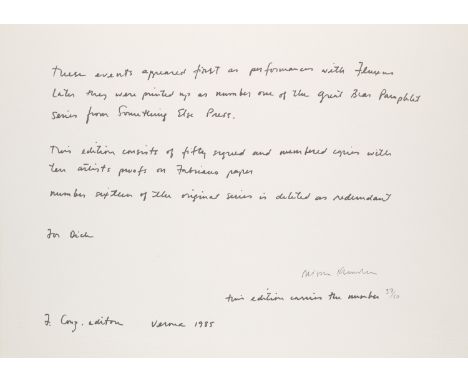 These events appeared first as performances with Fluxus
Later they were printed up as number one of the Great Bear Pamphlet
series from Something Else Press.
This edition consists of fifty signed and numbered copies with
ten artists proofs on Fabriano paper
number sixteen of the original series is deleted as redundant
For Dick
this edition carries the number
F. Conz, edition Verona 1985